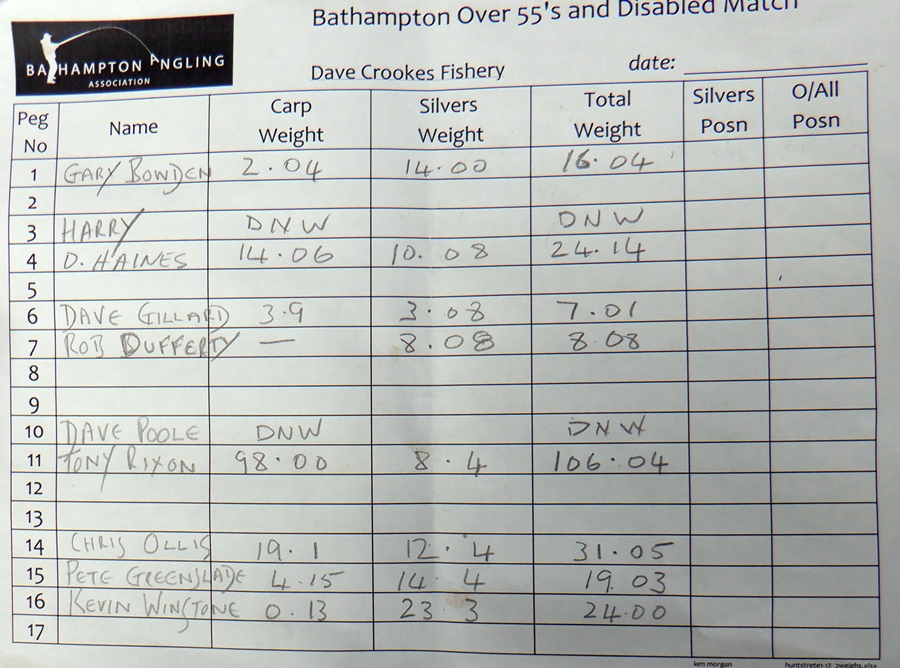 Bathampton Over 55's and Disabled Match
BATHAMPTON ANGLING
ASSOCIATION
Dave Crookes Fishery date:
Peg No Name Carp Weight Silvers Weight Total Weight Silvers Posn O/All Posn
1 GARY BOWDEN 2.04 14.00 16.04
2
3 HARRY DNW DNW
4 D. HAINES 14.06 10.08 24.14
5
6 DAVE GILLARD 3.9 3.08 7.01
7 ROB DUFFERTY — 8.08 8.08
8
9
10 DAVE POOLE DNW DNW
11 TONY RIXON 98.00 8.4 106.04
12
13
14 CHRIS OLLIS 19.1 12.4 31.05
15 PETE GREENSLADE 4.15 14 4 19.03
16 KEVIN WINSTONE 0.13 23 3 24.00
17
ken morgan